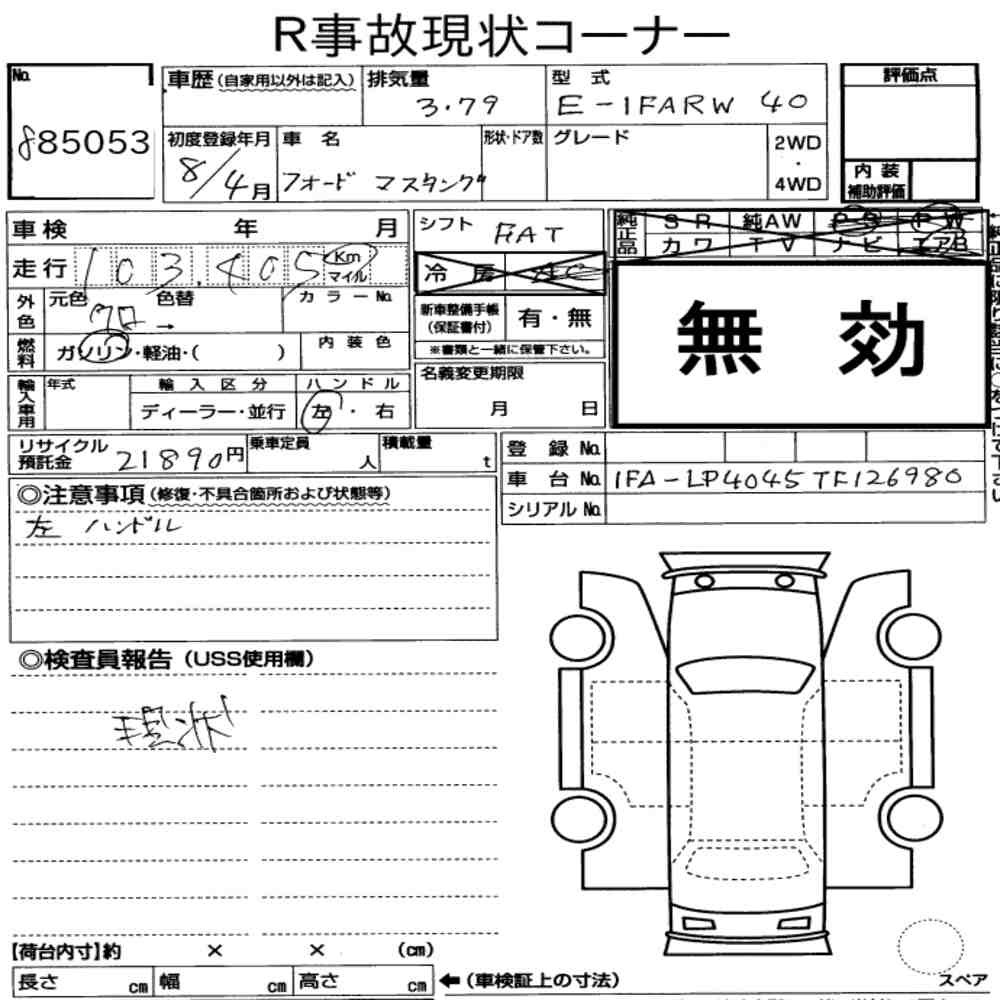 R事故現状コーナー
No. 885053
車歴 (自家用以外は記入) 排気量 3.79 型式 E-1FARW 40
評価点
初度登録年月 8/4月 車名 フォード マスタング 形状・ドア数 グレード 2WD・4WD
内装補助評価
車検 年 月
シフト FAT
純正品 SR 純AW PS PW
カワ TV ナビ エアB
走行 103,405 Km マイル
冷房 AC
無効
外色 元色 クロ 色替 → カラーNo.
新車整備手帳(保証書付) 有・無
※書類と一緒に保管下さい。
燃料 ガソリン・軽油・( ) 内装色
輸入車用 年式 輸入区分 ハンドル
ディーラー・並行 左・右
名義変更期限
月 日
リサイクル預託金 21890円 乗車定員 人 積載量 t
登録No.
車台No. 1FA-LP4045TF126980
シリアルNo.
◎注意事項 (修復・不具合箇所および状態等)
左ハンドル
◎検査員報告 (USS使用欄)
現状
【荷台内寸】約 × × (cm)
長さ cm 幅 cm 高さ cm ← (車検証上の寸法)
スペア